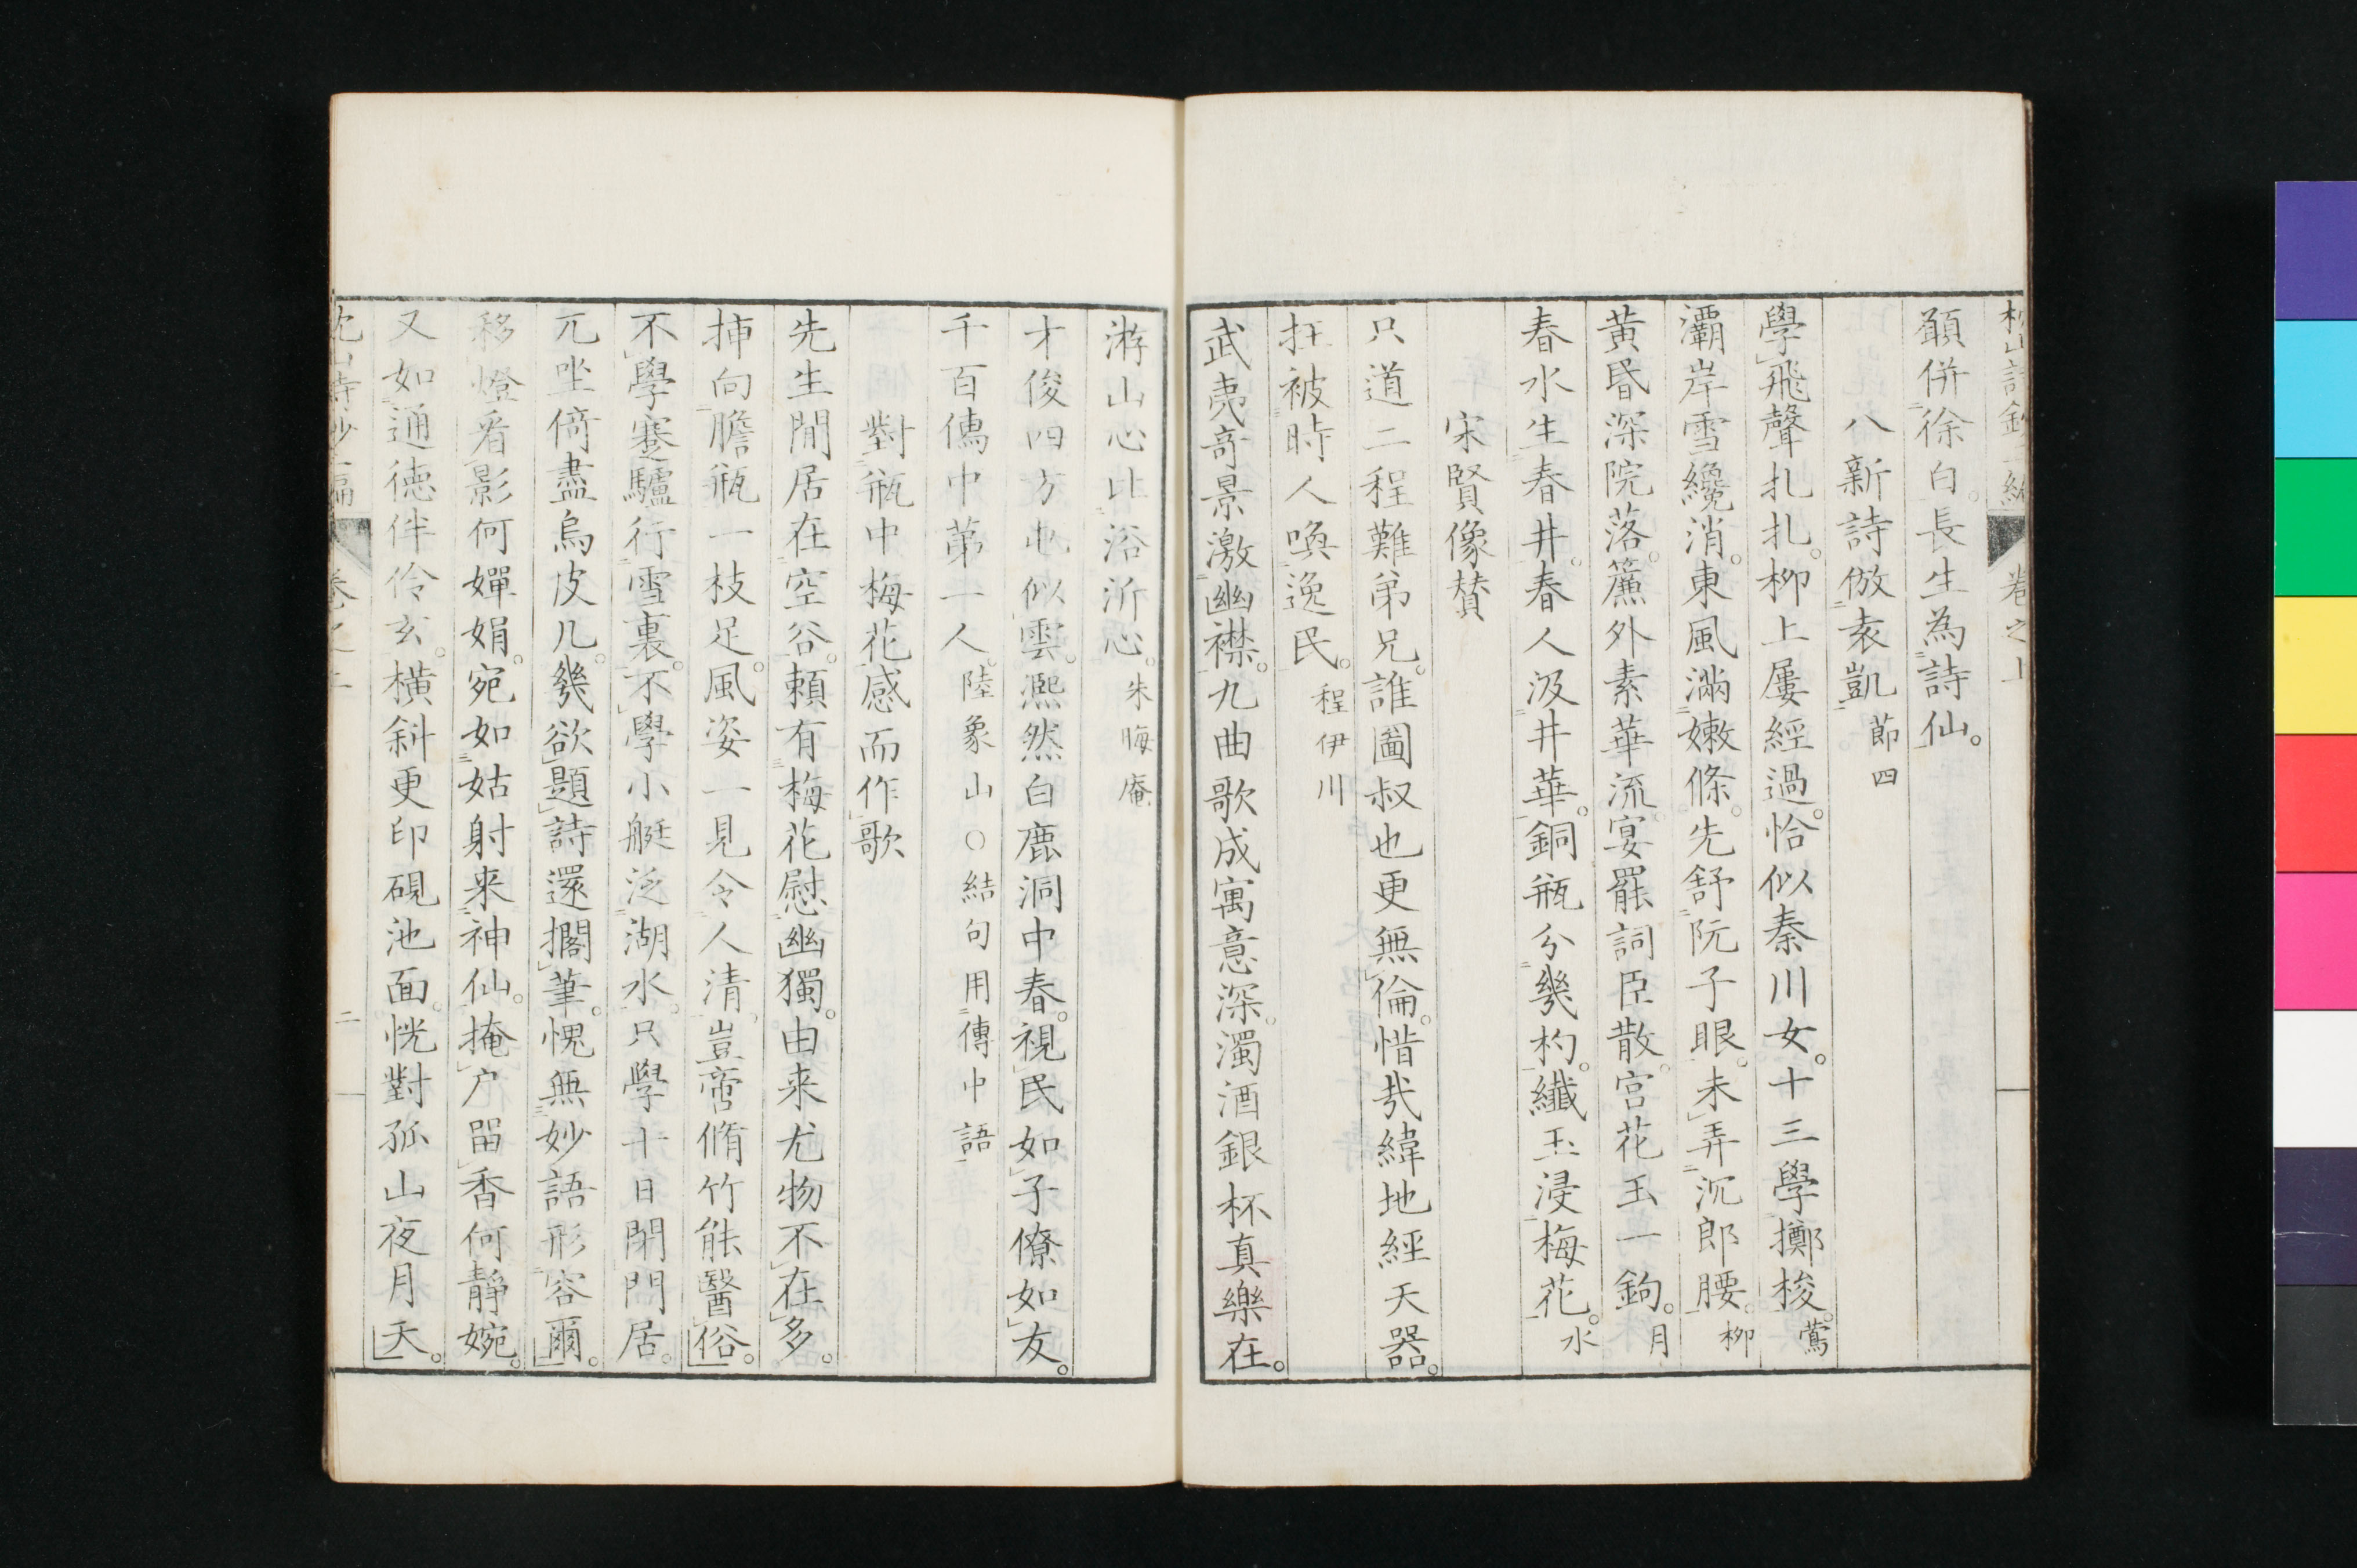 願併徐白。長生為詩仙。
八新詩倣袁凱 節四
學飛聲扎扎。柳上屢經過。恰似秦川女。十三學擲梭。鶯
灞岸雪纔消。東風滿嫩條。先舒阮子眼。未弄沉郎腰。柳
黃昏深院落。簾外素華流。宴罷詞臣散。宮花玉一鉤。月
春水生春井。春人汲井華。銅瓶分幾杓。纖玉浸梅花。水
宋賢像賛
只道二程難弟兄。誰圖叔也更無倫。惜哉緯地經天器。
抂被時人喚逸民。程伊川
武夷奇景激幽襟。九曲歌成寓意深。濁酒銀杯真樂在。
游山心比浴沂心。朱晦庵
才俊四方屯似雲。凞然白鹿洞中春。視民如子僚如友。
千百儁中第一人。陸象山○結句用傳中語
對瓶中梅花感而作歌
先生閒居在空谷。頼有梅花慰幽獨。由来尤物不在多。
挿向膽瓶一枝足。風姿一見令人清。豈啻脩竹能醫俗。
不學蹇驢行雪裏。不學小艇泛湖水。只學十日閉門居。
兀坐倚盡烏皮几。幾欲題詩還擱筆。愧無妙語形容爾。
移燈看影何嬋娟。宛如姑射来神仙。掩户留香何靜婉。
又如通德伴伶玄。橫斜更印硯池面。恍對孤山夜月天。